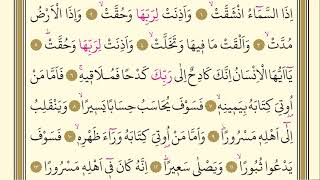 اِذَا السَّمَٓاءُ انْشَقَّتْۙ ﴿١﴾ وَاَذِنَتْ لِرَبِّهَا وَحُقَّتْۙ ﴿٢﴾ وَاِذَا الْاَرْضُ
مُدَّتْۙ ﴿٣﴾ وَاَلْقَتْ مَا ف۪يهَا وَتَخَلَّتْۙ ﴿٤﴾ وَاَذِنَتْ لِرَبِّهَا وَحُقَّتْۜ ﴿٥﴾
يَٓا اَيُّهَا الْاِنْسَانُ اِنَّكَ كَادِحٌ اِلٰى رَبِّكَ كَدْحًا فَمُلَاق۪يهِۚ ﴿٦﴾ فَاَمَّا مَنْ
اُو۫تِيَ كِتَابَهُ بِيَم۪ينِه۪ۙ ﴿٧﴾ فَسَوْفَ يُحَاسَبُ حِسَابًا يَس۪يرًاۙ ﴿٨﴾ وَيَنْقَلِبُ
اِلٰٓى اَهْلِه۪ مَسْرُورًاۜ ﴿٩﴾ وَاَمَّا مَنْ اُو۫تِيَ كِتَابَهُ وَرَٓاءَ ظَهْرِه۪ۙ ﴿١٠﴾ فَسَوْفَ
يَدْعُوا ثُبُورًاۙ ﴿١١﴾ وَيَصْلٰى سَع۪يرًاۜ ﴿١٢﴾ اِنَّهُ كَانَ ف۪ٓي اَهْلِه۪ مَسْرُورًاۜ ﴿١٣﴾